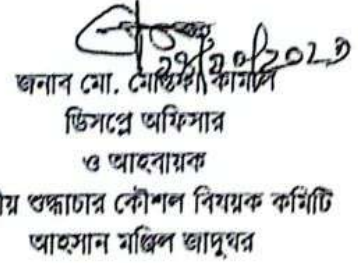 জনাব মো. মোস্তফা কামাল
ডিসপ্লে অফিসার
ও আহবায়ক
য় শুদ্ধাচার কৌশল বিষয়ক কমিটি
আহসান মঞ্জিল জাদুঘর